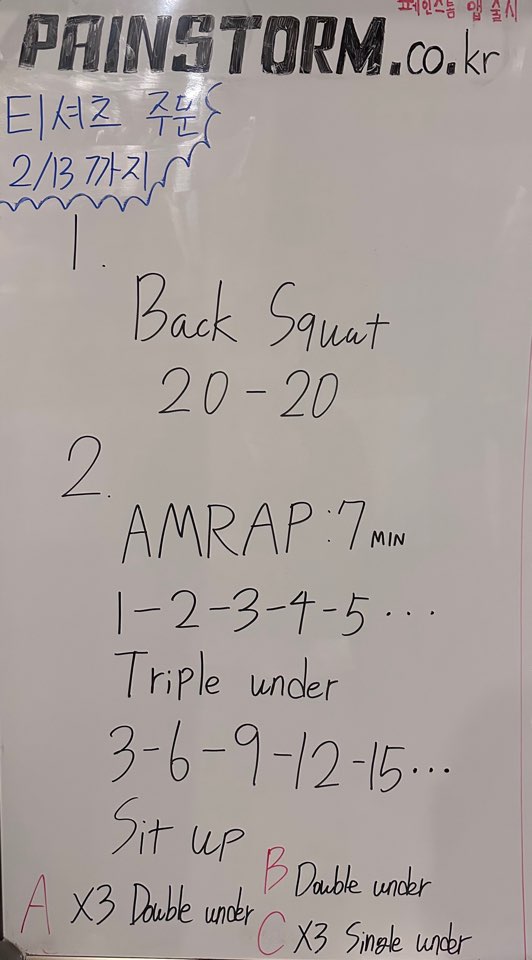 페인스톰 앱 출시
PAINSTORM.co.kr
티셔츠 주문
2/13 까지
1.
Back Squat
20-20
2.
AMRAP:7 MIN
1-2-3-4-5...
Triple under
3-6-9-12-15...
Sit up
A X3 Double under
B Double under
C X3 Single under